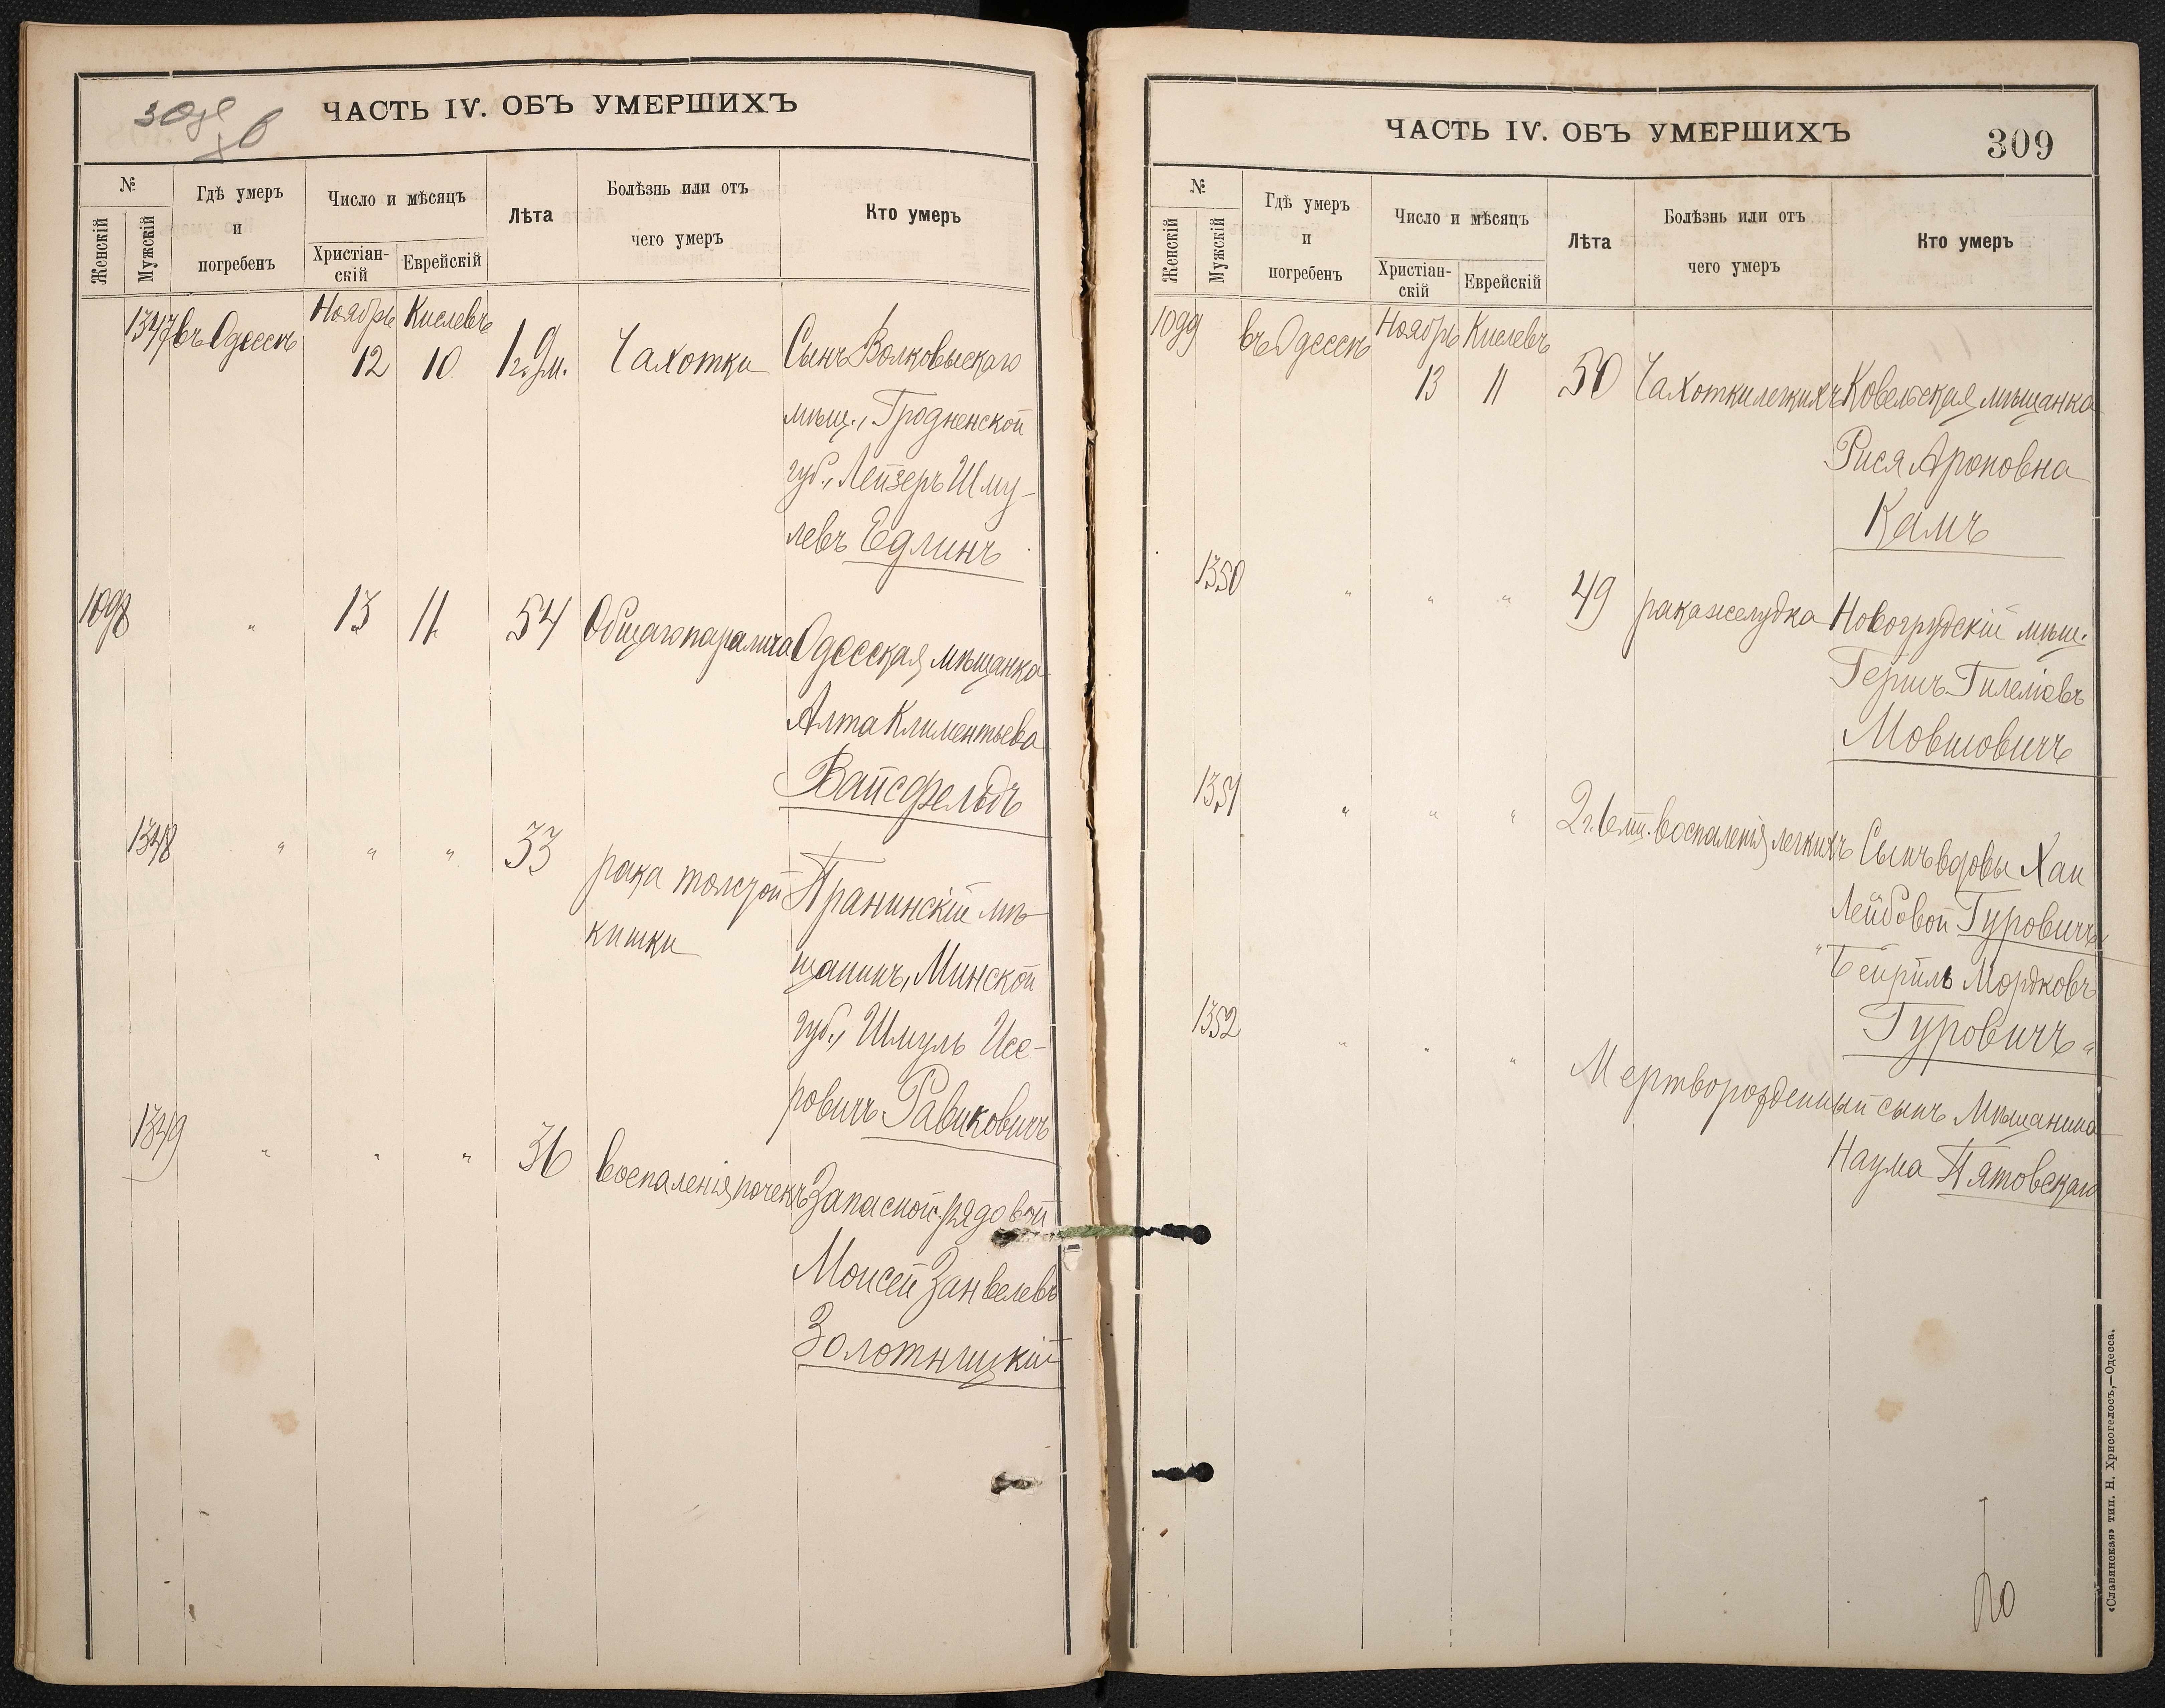 308
об
ЧАСТЬ IV. ОБЪ УМЕРШИХЪ
№
Женскій
Мужскій
Гдѣ умеръ
и
погребенъ
Число и мѣсяцъ
Христіан-
скій
Еврейскій
Лѣта
Болѣзнь или отъ
чего умеръ
Кто умеръ
1347 въ Одессѣ Ноябрь 12 Кислевъ 10 1 г. 9 м. Чахотки Сынъ Волковыскаго
мѣщ., Гродненской
губ., Лейзеръ Шму-
левъ Едлинъ
1098 " 13 11 54 Общаго паралича Одесская мѣщанка
Алта Климентьева
Вайсфельдъ
1348 " " " 33 рака толстой Пранинскій мѣ-
кишки
щанинъ, Минской
губ., Шмуль Исе-
ровичъ Равиковичъ
1349 " " " 36 воспаленія почекъ Запасной рядовой
Моисей Занвелевъ
Золотницкій
ЧАСТЬ IV. ОБЪ УМЕРШИХЪ
309
№
Женскій
Мужскій
Гдѣ умеръ
и
погребенъ
Число и мѣсяцъ
Христіан-
скій
Еврейскій
Лѣта
Болѣзнь или отъ
чего умеръ
Кто умеръ
1099 въ Одессѣ Ноябрь 13 Кислевъ 11 50 Чахотки легкихъ Ковельская мѣщанка
Рися Ароновна
Камъ
1350 " " " 49 рака желудка Новогрудскій мѣщ.
Гершъ Гилеліовъ
Мовшовичъ
1351 " " " 2 г. 6 мц. воспаленія легкихъ Сынъ вдовы Хаи
Лейбовой Гуровичъ
"Бейриль Мордковъ
Гуровичъ"
1352 " " " Мертворожденный сынъ Мѣщанина
Наума Пятовскаго
«Славянская» тип. Н. Хрисогелосъ,—Одесса.